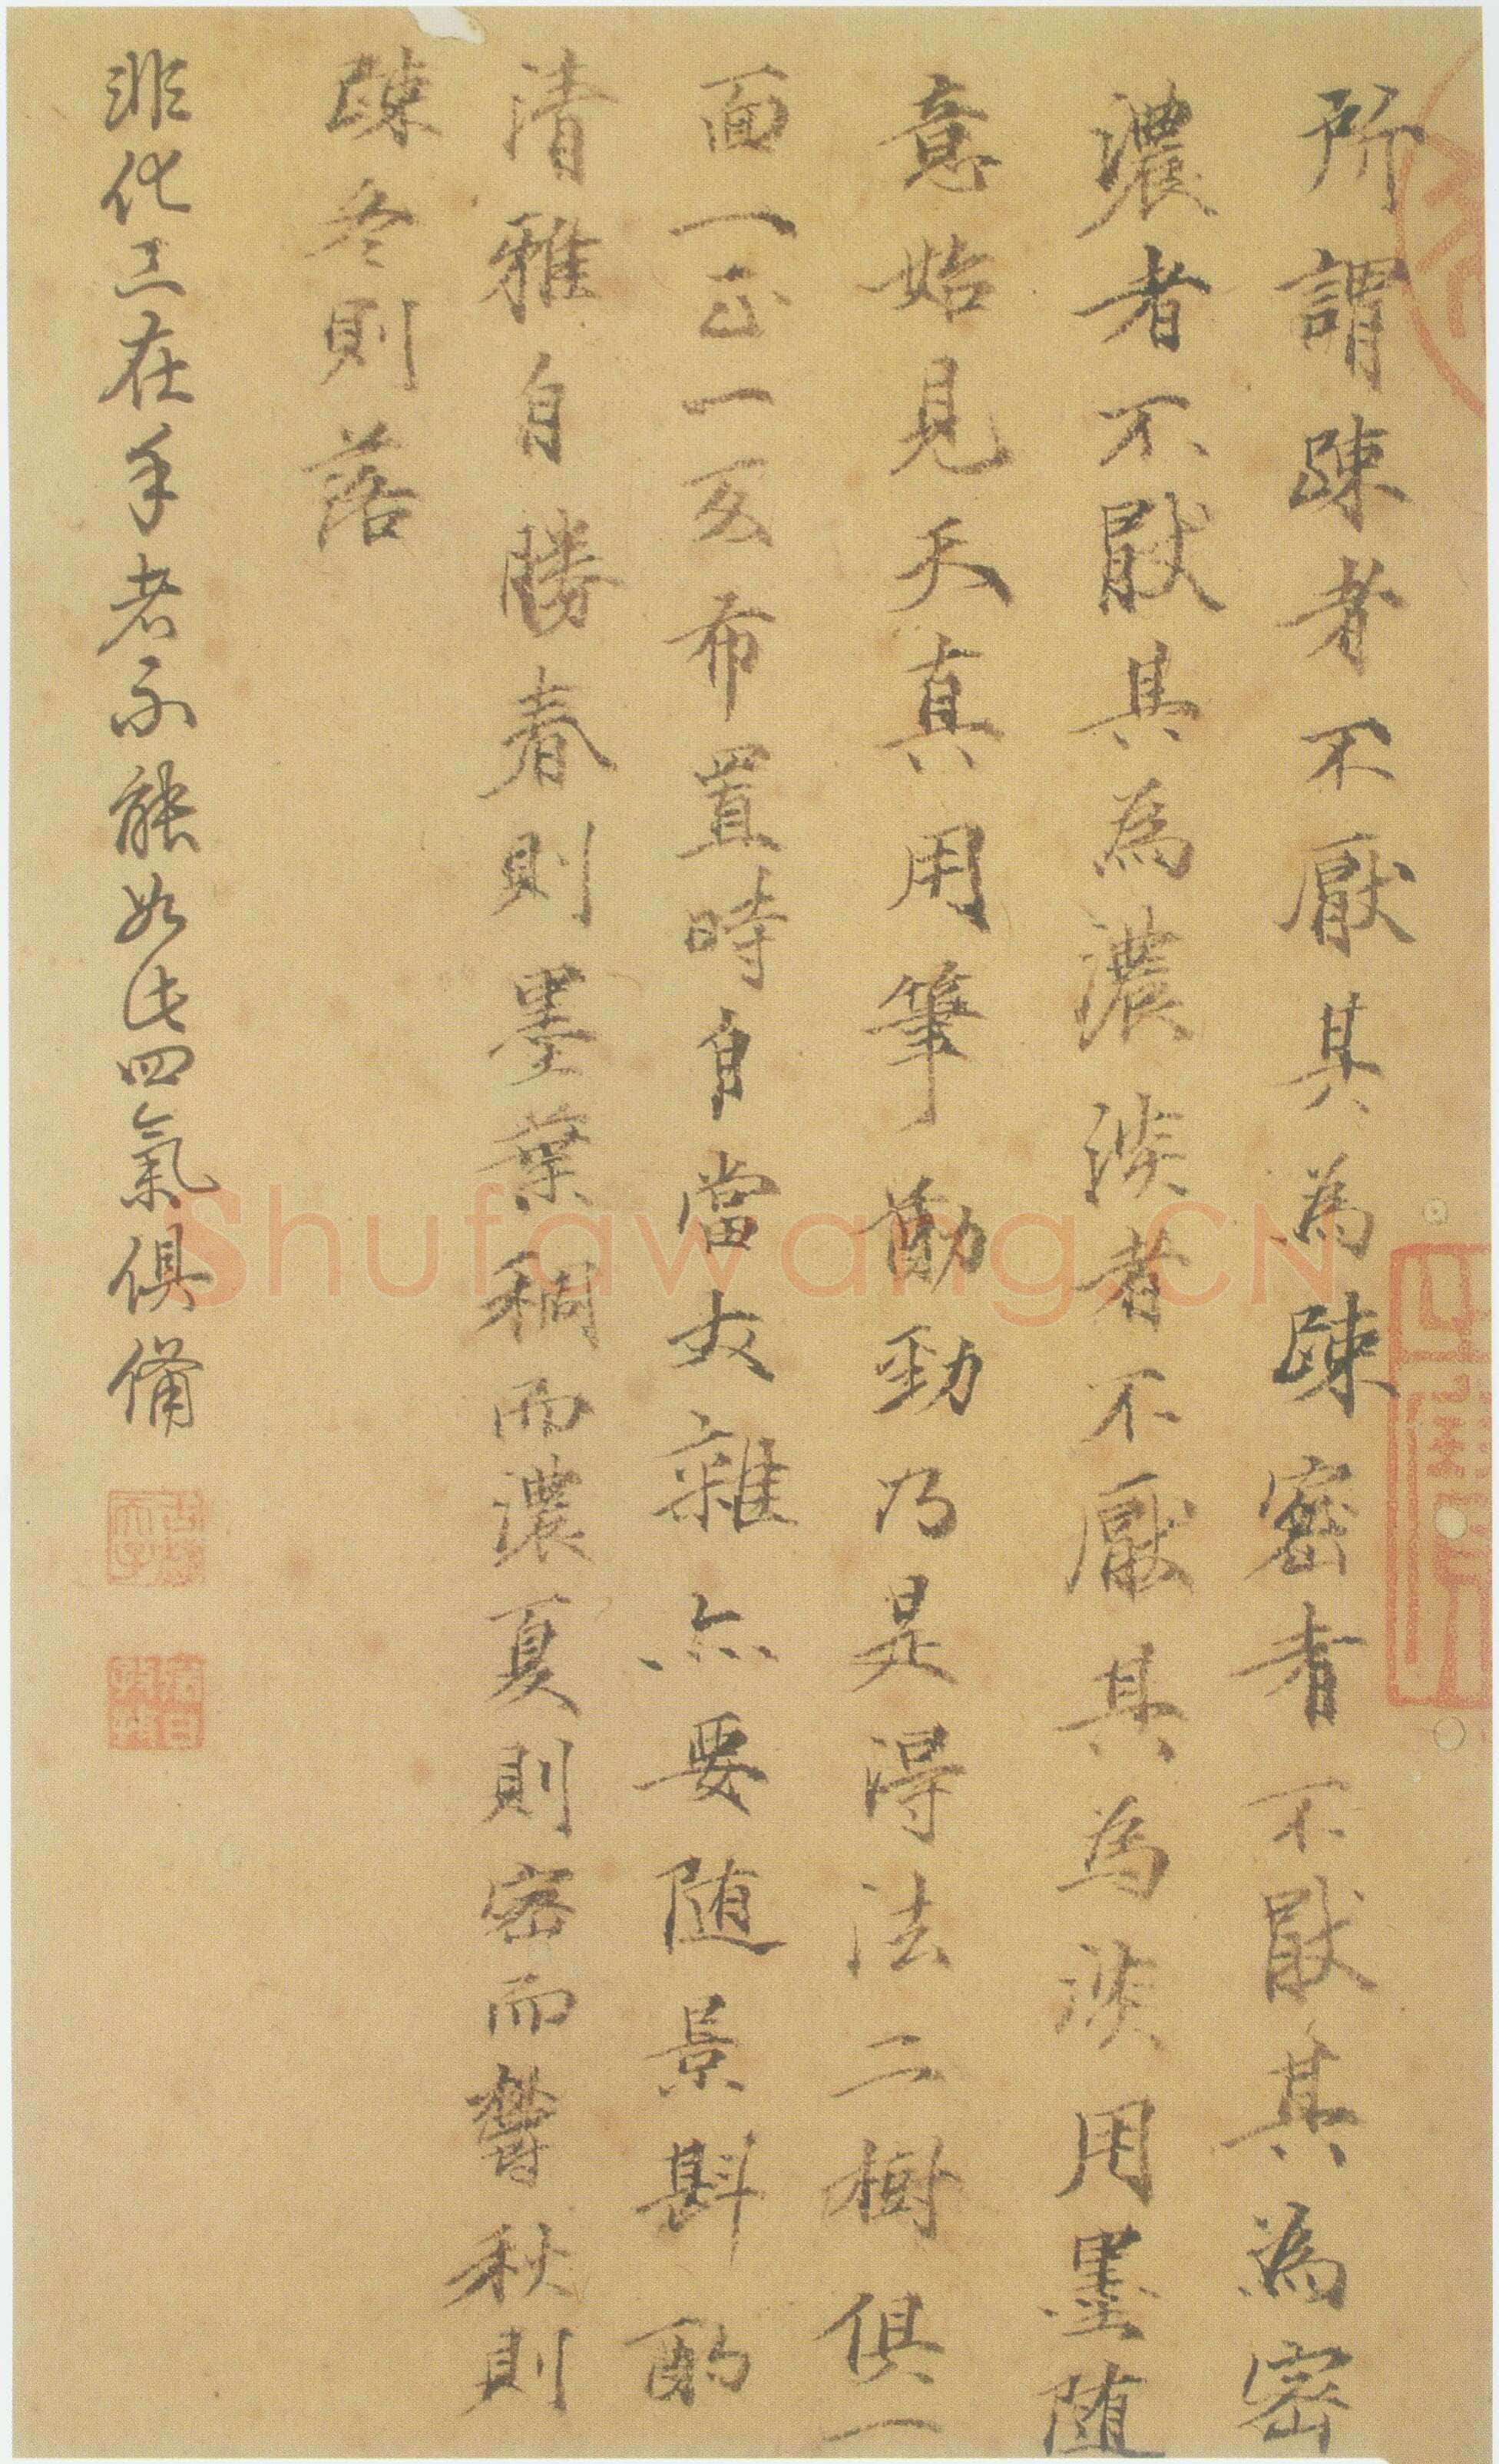 所謂踈者不厭其為踈密者不猒其為密
濃者不猒其為濃淡者不厭其為淡用墨随
意始見天真用筆勤勁乃是得法二樹俱一
面一正一反布置時自當交雜亦要随景斟酌
清雅自勝春則墨葉稠而濃夏則密而鬱秋則
踈冬則落
非化工在手者不能如此四氣俱備
Shufawang.CN